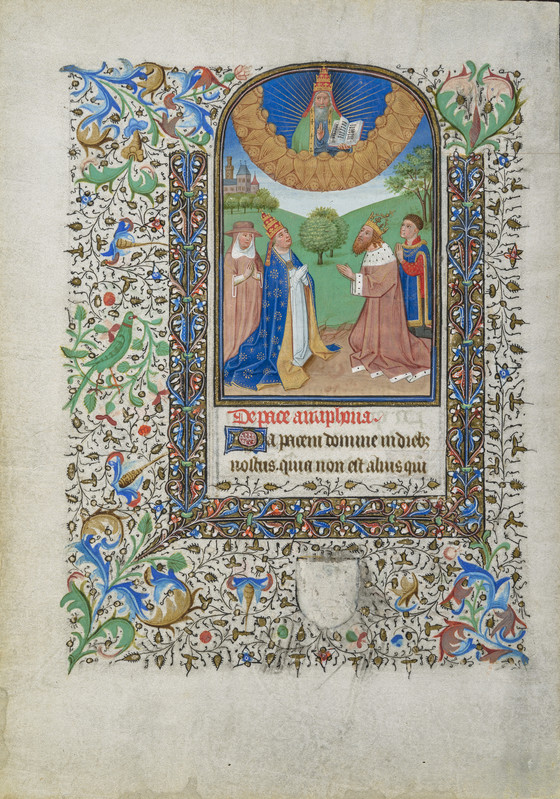 De pace antiphona.
Da pacem domine in dieb;
nostris. quia non est alius qui